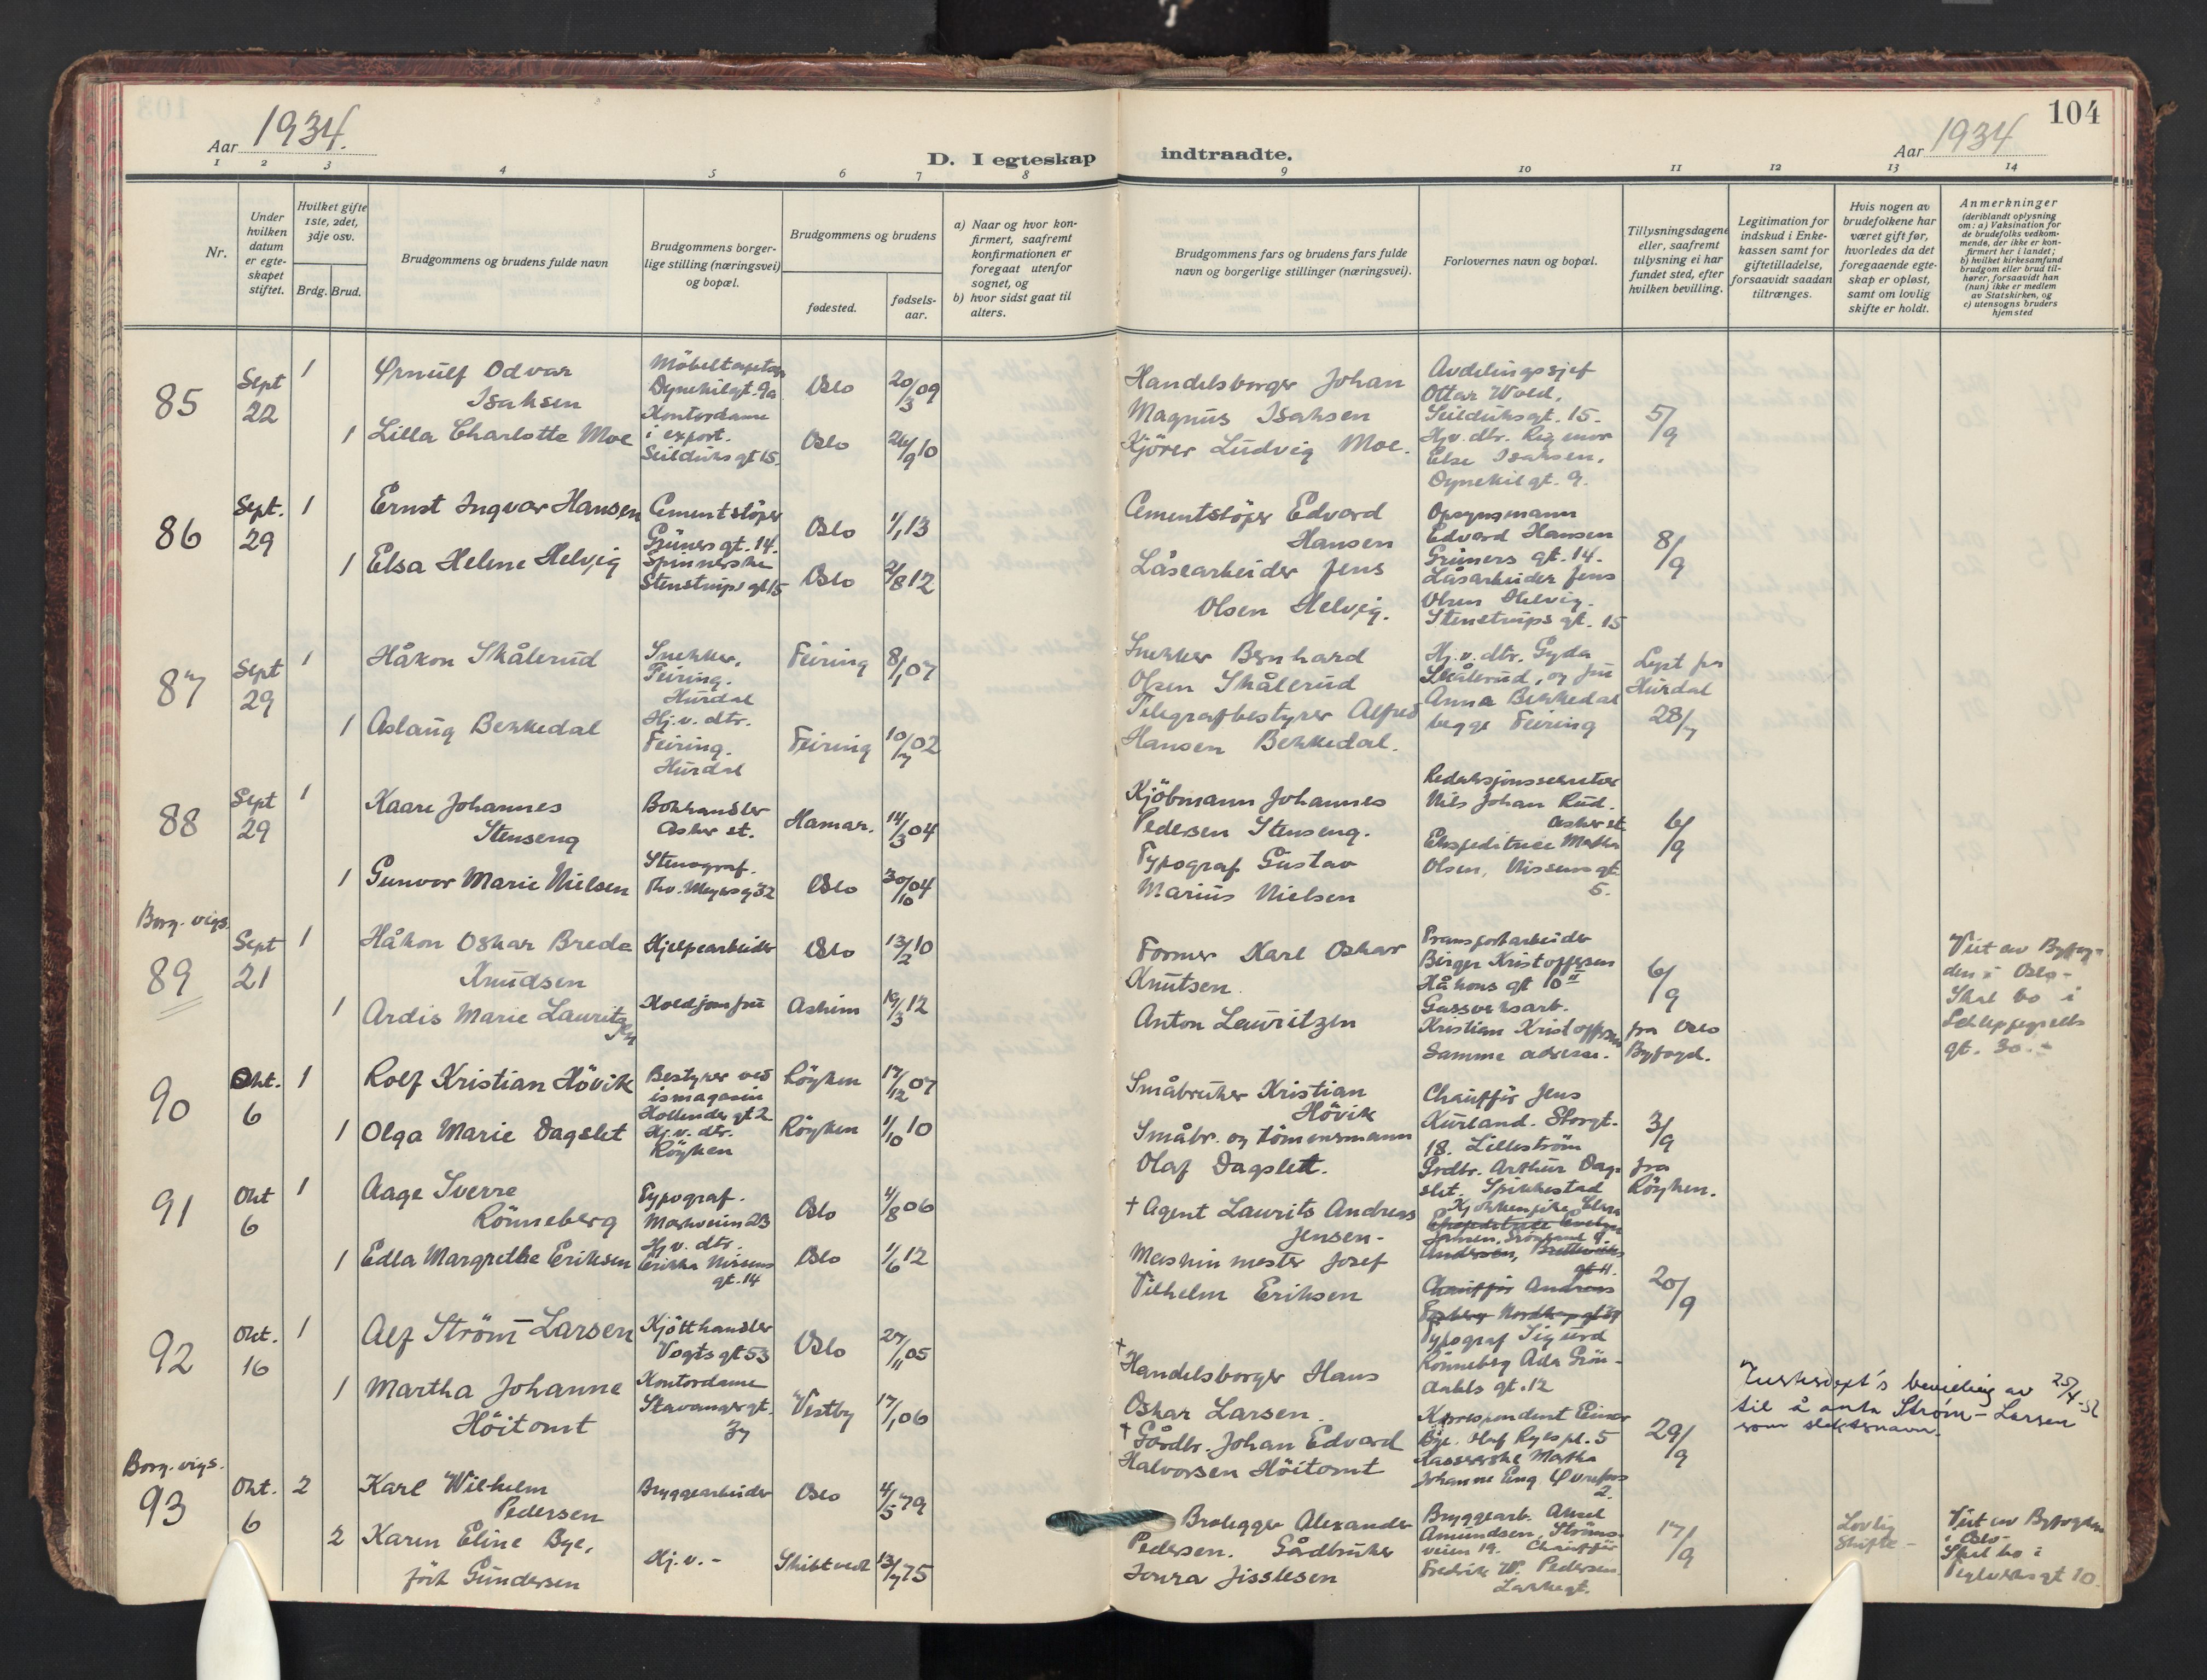 104
Aar 1934.
Aar 1934
D. I egteskap indtraadte.
1 2 3 4 5 6 7 8 9 10 11 12 13 14
Nr.
Under hvilken datum er egte-skapet stiftet.
Hvilket gifte 1ste, 2det, 3dje osv.
Brdg. Brud.
Brudgommens og brudens fulde navn
Brudgommens borger-lige stilling (næringsvei) og bopæl.
Brudgommens og brudens
fødested.
fødsels-aar.
a) Naar og hvor kon-firmert, saafremt konfirmationen er foregaat utenfor sognet, og
b) hvor sidst gaat til alters.
Brudgommens fars og brudens fars fulde navn og borgerlige stillinger (næringsvei).
Forlovernes navn og bopæl.
Tillysningsdagene eller, saafremt tillysning ei har fundet sted, efter hvilken bevilling.
Legitimation for indskud i Enke-kassen samt for giftetilladelse, forsaavidt saadan tiltrænges.
Hvis nogen av brudefolkene har været gift før, hvorledes da det foregaaende egte-skap er opløst, samt om lovlig skifte er holdt.
Anmerkninger
(deriblandt oplysning om: a) Vaksination for de brudefolks vedkom-mende, der ikke er kon-firmert her i landet; b) hvilket kirkesamfund brudgom eller brud til-hører, forsaavidt han (hun) ikke er medlem av Statskirken, og c) utensogns bruders hjemsted
85
Sept 22
1
Ørnulf Odvar Isaksen
Möbeltapetser Dynekilgt. 9a
Oslo
20/3 09
1
Lilla Charlotte Moe
Kontordame i export. Seilduksgt 15.
Oslo
26/9 10
Handelsborger Johan Magnus Isaksen
Kjörer Ludvig Moe.
Avdelingssjef Ottar Wold, Seilduksgt. 15.
Hj.v. dtr. Rigmor Else Isaksen, Dynekilgt. 9.
5/9
86
Sept. 29
1
Ernst Ingvar Hansen
Cementstöper Grüners gt. 14.
Oslo
1/1 13
1
Elsa Helene Helvig
Spinnerske Stenstrups gt 15
Oslo
2/8 12
Cementstöper Edvard Hansen
Låsearbeider Jens Olsen Helvig.
Opsynsmann Edvard Hansen Grüners gt. 14.
Låsarbeider Jens Olsen Helvig. Stenstrups gt. 15
8/9
87
Sept 29
1
Håkon Skålerud
Snekker, Feiring. Hurdal
Feiring
8/1 07
1
Aslaug Bekkedal
Hj.v. dtr. Feiring. Hurdal
Feiring
10/7 02
Snekker Bernhard Olsen Skålerud
Telegrafbestyrer Alfred Hansen Bekkedal.
Hj.v. dtr. Gyda Skålerud, og fru Anna Bekkedal begge Feiring
Lyst fra Hurdal 28/7
88
Sept 29
1
Kaare Johannes Stenseng
Bokhandler Asker st.
Hamar.
14/3 04
1
Gunvor Marie Nielsen
Stenograf. Thv. Meyers g 32
Oslo
30/10 04
Kjöbmann Johannes Pedersen Stenseng.
Typograf Gustav Marius Nielsen
Redaksjonssekretær Nils Johan Rud. Asker st
Ekspeditrise Martha Olsen, Nissens gt 5.
6/9
Borg. vigs.
89
Sept 21
1
Håkon Oskar Brede Knudsen
Hjelpearbeider
Oslo
13/2 10
1
Ardis Marie Lauritzen
Koldjomfru
Askim
19/3 12
Former Karl Oskar Knutsen.
Anton Lauritzen
Transportarbeider Birger Kristoffersen Håkons gt 10 II
Gassverksarb. Kristian Kristoffersen Samme adresse.
6/9
fra Oslo Byfogd.
Viet av Byfogden i Oslo - Skal bo i Schleppegrells gt. 30. -
90
Okt. 6
1
Rolf Kristian Hövik
Bestyrer ved ismagasin Hollender gt 2
Röyken
17/12 07
1
Olga Marie Dagslet
Hj.v. dtr. Röyken
Röyken
1/10 10
Småbruker Kristian Hövik
Småbr. og tömmermann Olaf Dagslett.
Chauffør Jens Kurland. Storgt. 18. Lilleström
Grdbr. Arthur Dagslet. Spikkestad
3/9
fra Röyken.
91
Okt 6
1
Aage Sverre Rönneberg
Typograf. Markveien 23
Oslo
4/8 06
1
Edla Margrethe Eriksen
Hj.v. dtr. Erika Nissens gt. 14
Oslo
1/6 12
† Agent Laurits Andreas Jensen-
Maskinmester Josef Vilhelm Eriksen
Andersen,
gt 11.
Chauffør Andreas
Typograf Sigurd Rönneberg Ada Gröndahls gt. 12
20/9
92
Okt. 16
1
Alf Ström-Larsen
Kjötthandler Vogts gt 53
Oslo
27/11 05
1
Martha Johanne Höitomt
Kontordame Stavangergt. 37
Vestby
17/1 06
† Handelsborger Hans Oskar Larsen.
† Gårdbr. Johan Edvard Halvorsen Höitomt
Korrespondent Einar Bye. Olaf Ryes pl. 5
Kassererske Martha Johanne Eng 2.
29/9
bevilling av 25/4-52 til å anta Strøm-Larsen som slektsnavn.
Borg. vigs.
93
Okt. 6
2
Karl Wilhelm Pedersen
Bryggearbeider
Oslo
4/5 79
2
Karen Eline Bye, födt Gundersen
Hj.v. -
Skibtvedt
13/7 75
Brolegger Alexander Pedersen. Gårdbruker
Bryggearb. Aksel Amundsen, Strömsveien 19. Chauffür Fredrik W. Pedersen. Larkegt.
17/9
Lovlig Skifte -
Viet av Byfogden i Oslo- Skal bo i Teglverksgt 10.